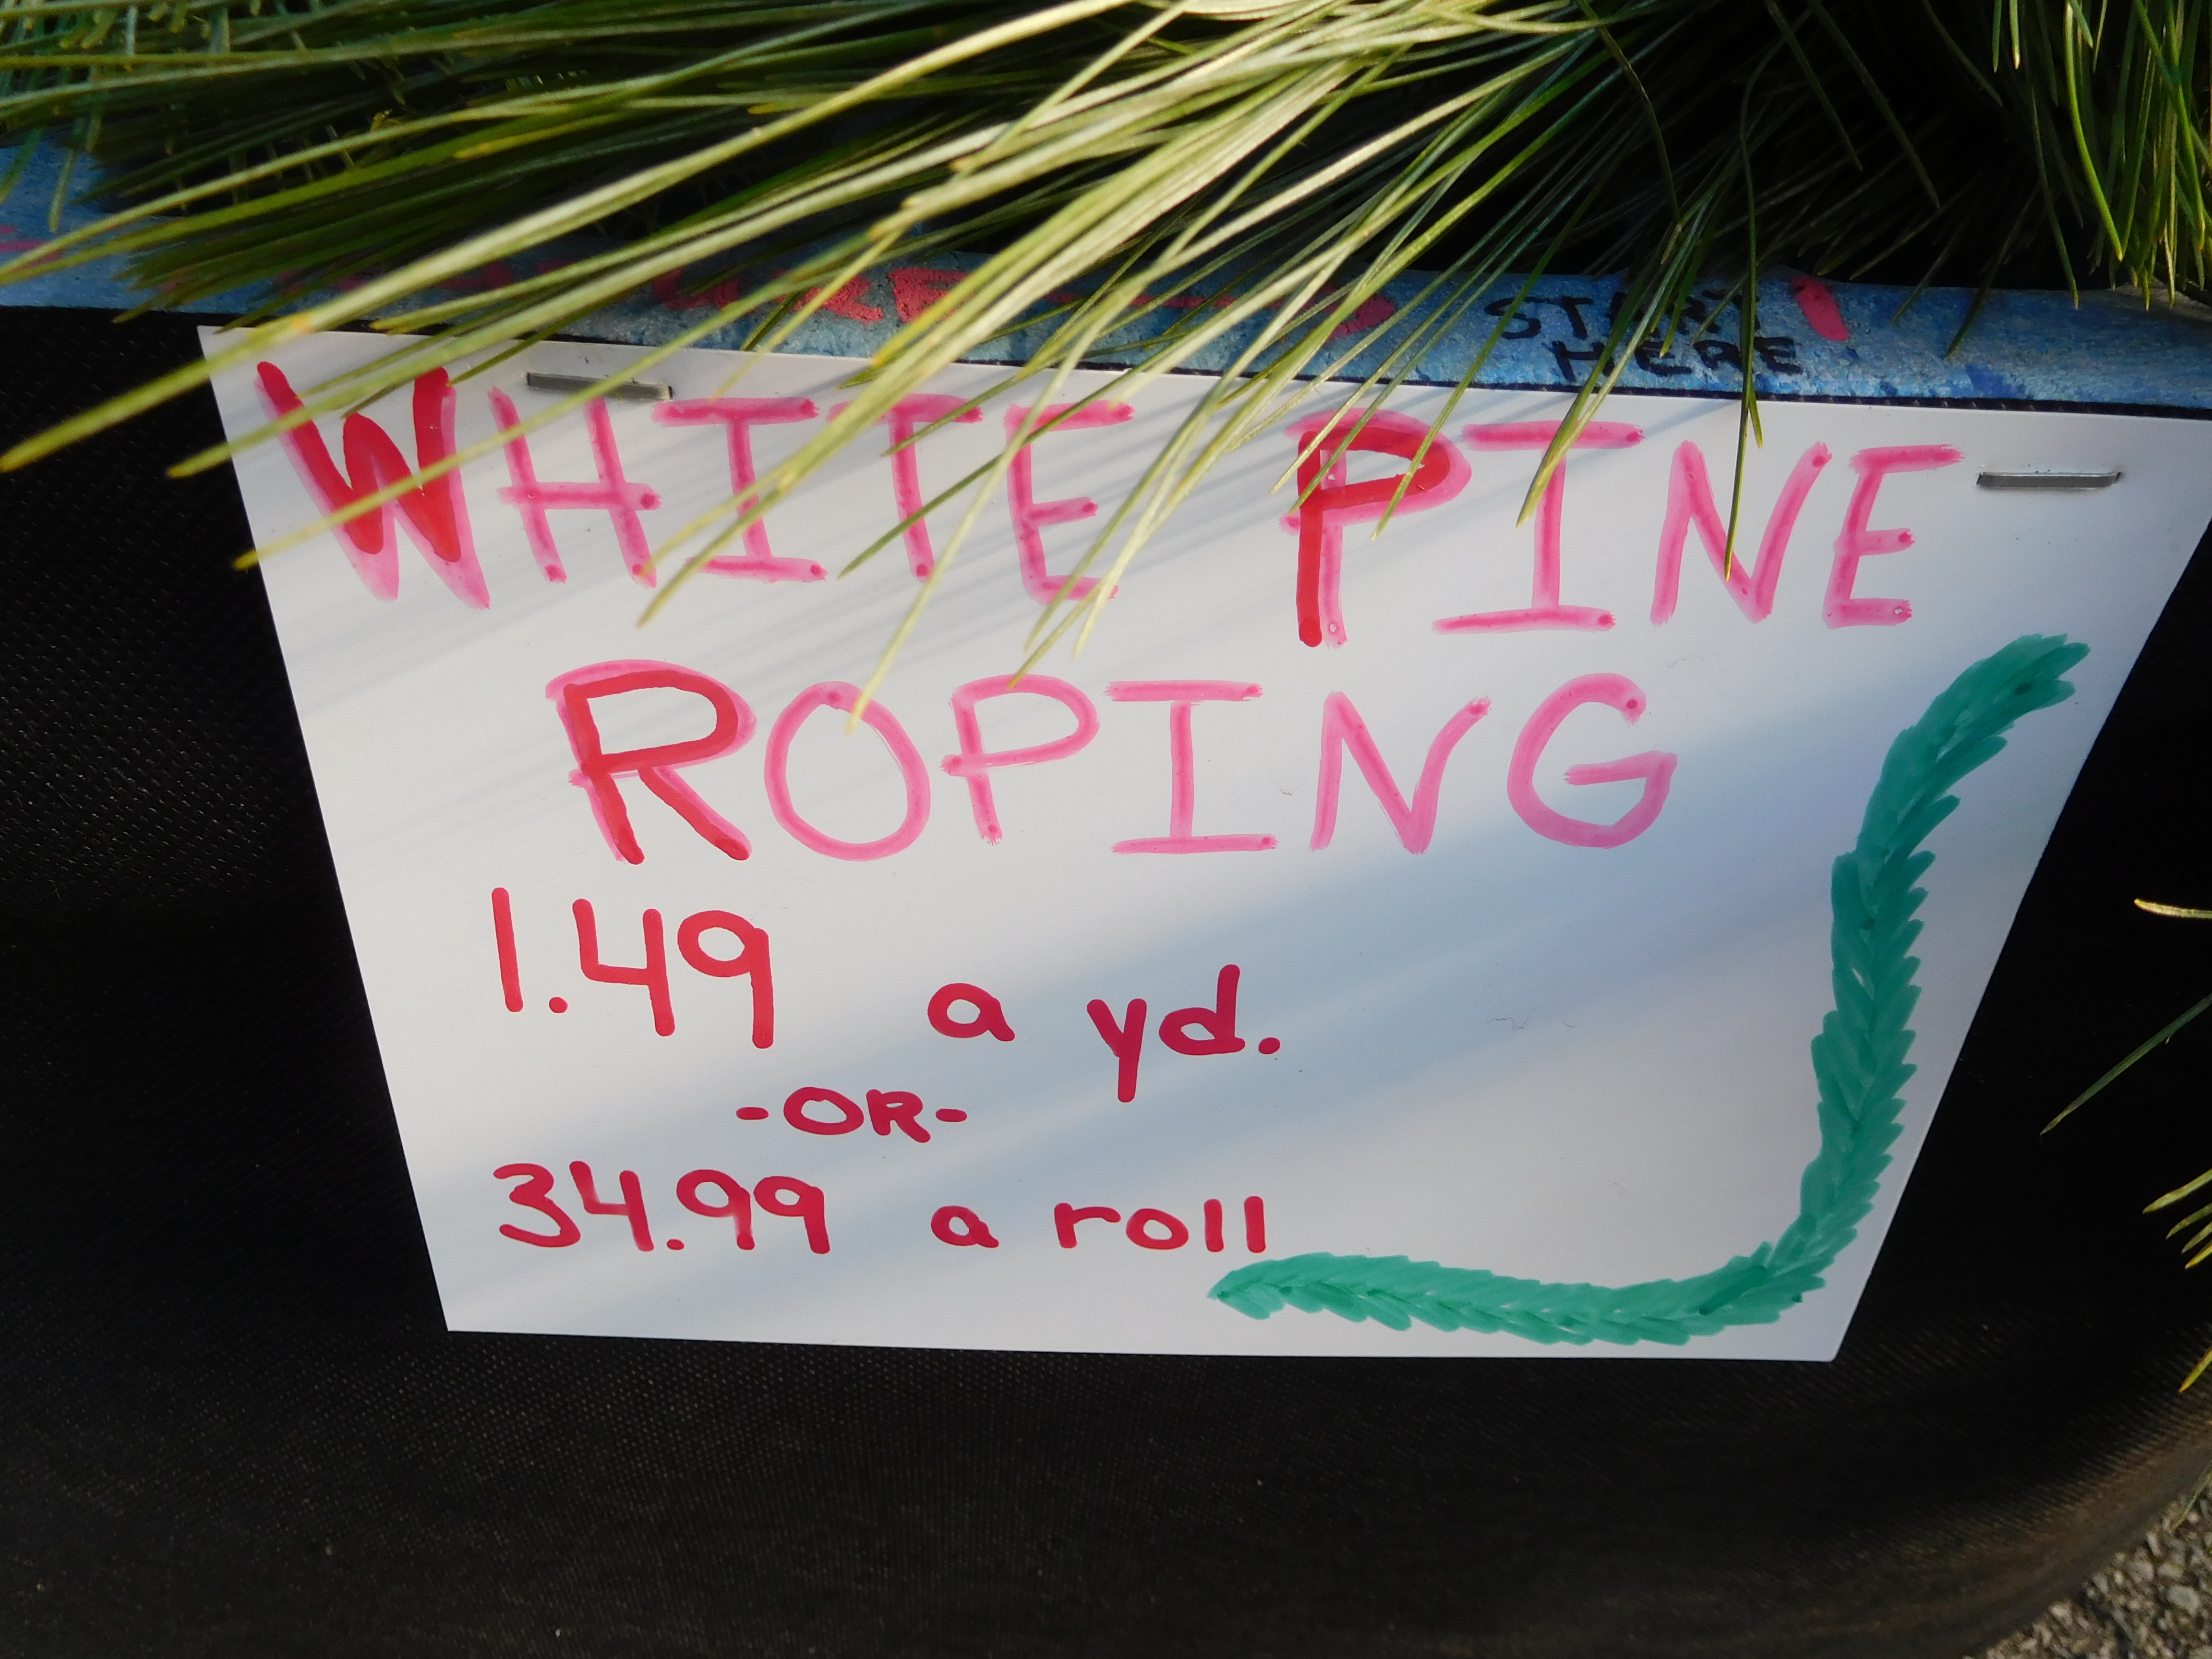 START
HERE
WHITE PINE
ROPING
1.49 a yd.
-OR-
34.99 a roll